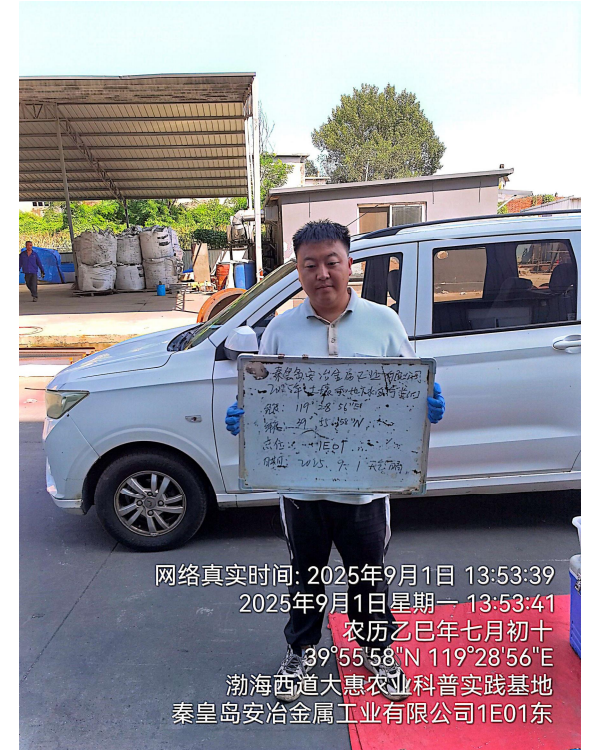 秦皇岛安冶金属工业有限公司
2025年土壤
经度: 119°28'56"E
纬度: 39°55'58"N
点位: 1E01
日期: 2025. 9. 1
网络真实时间: 2025年9月1日 13:53:39
2025年9月1日星期一 13:53:41
农历乙巳年七月初十
39°55'58"N 119°28'56"E
渤海西道大惠农业科普实践基地
秦皇岛安冶金属工业有限公司1E01东